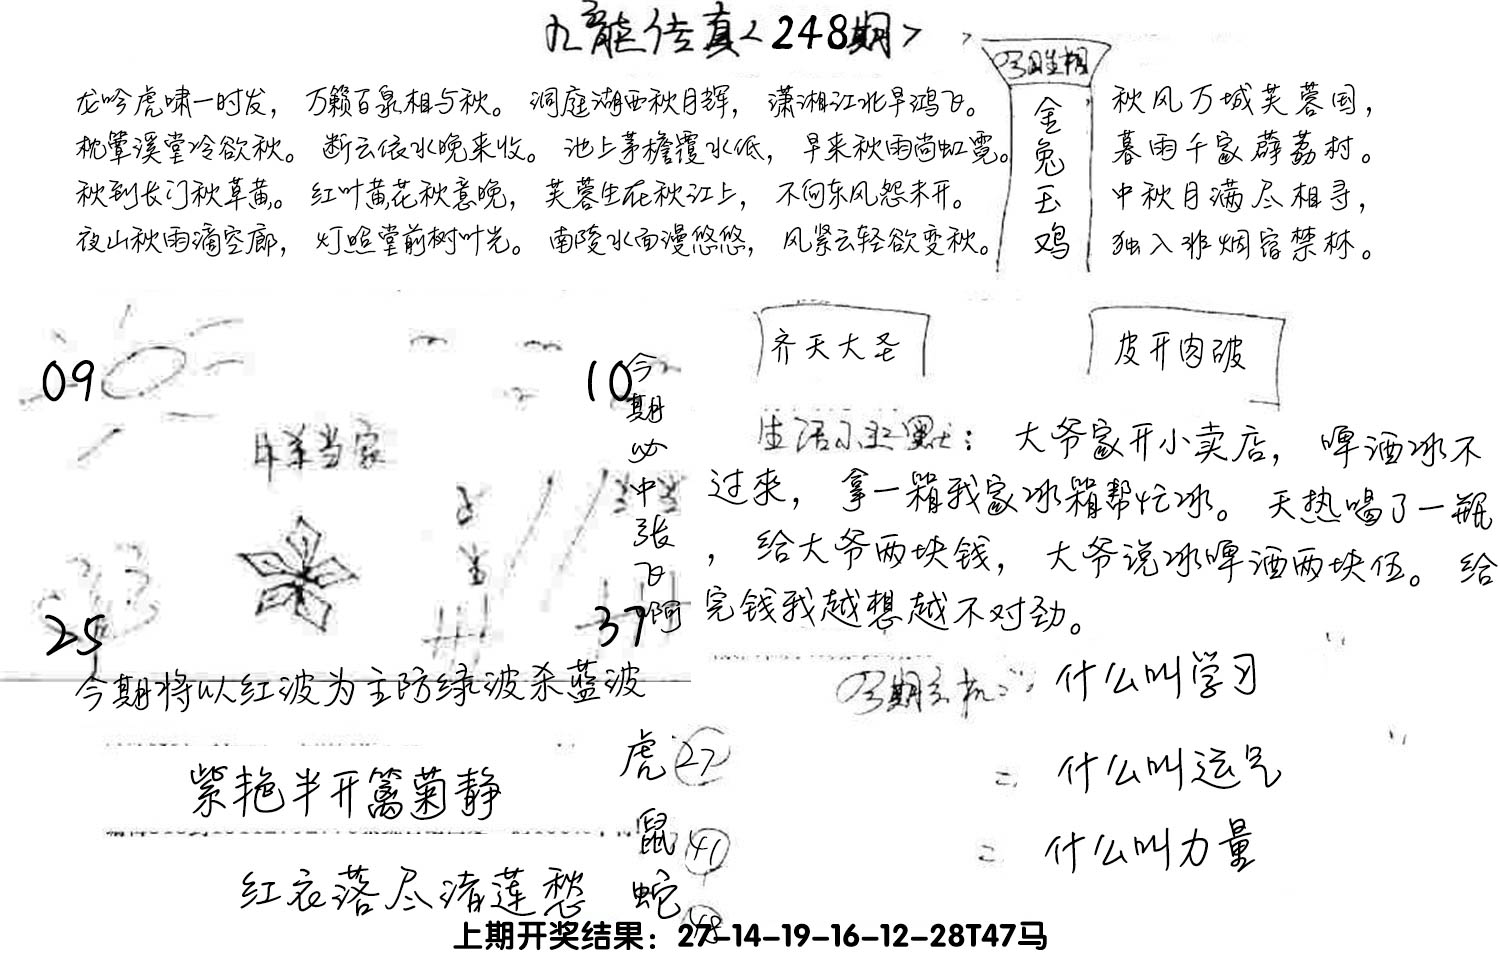 九龙传真<248期>
今日生相
金兔玉鸡
龙吟虎啸一时发，万籁百泉相与秋。洞庭湖西秋月辉，潇湘江北早鸿飞。
枕簟溪堂冷欲秋。断云依水晚来收。池上茅檐覆水低，早来秋雨尚虹霓。
秋到长门秋草黄。红叶黄花秋意晚，芙蓉生在秋江上，不向东风怨未开。
夜山秋雨滴空廊，灯照堂前树叶光。南陵水面漫悠悠，风紧云轻欲变秋。
秋风万城芙蓉国，
暮雨千家薜荔村。
中秋月满尽相寻，
独入非烟宿禁林。
09
10
今期必中张飞啊
当家
25
37
今期将以红波为主防绿波杀蓝波
齐天大圣
皮开肉破
生活小幽默：大爷家开小卖店，啤酒冰不
过来，拿一箱我家冰箱帮忙冰。天热喝了一瓶
，给大爷两块钱，大爷说冰啤酒两块伍。给
完钱我越想越不对劲。
今期玄机：什么叫学习
=什么叫运气
=什么叫力量
紫艳半开篱菊静
红衣落尽渚莲愁
虎 27
鼠 41
蛇 48
上期开奖结果：27-14-19-16-12-28T47马